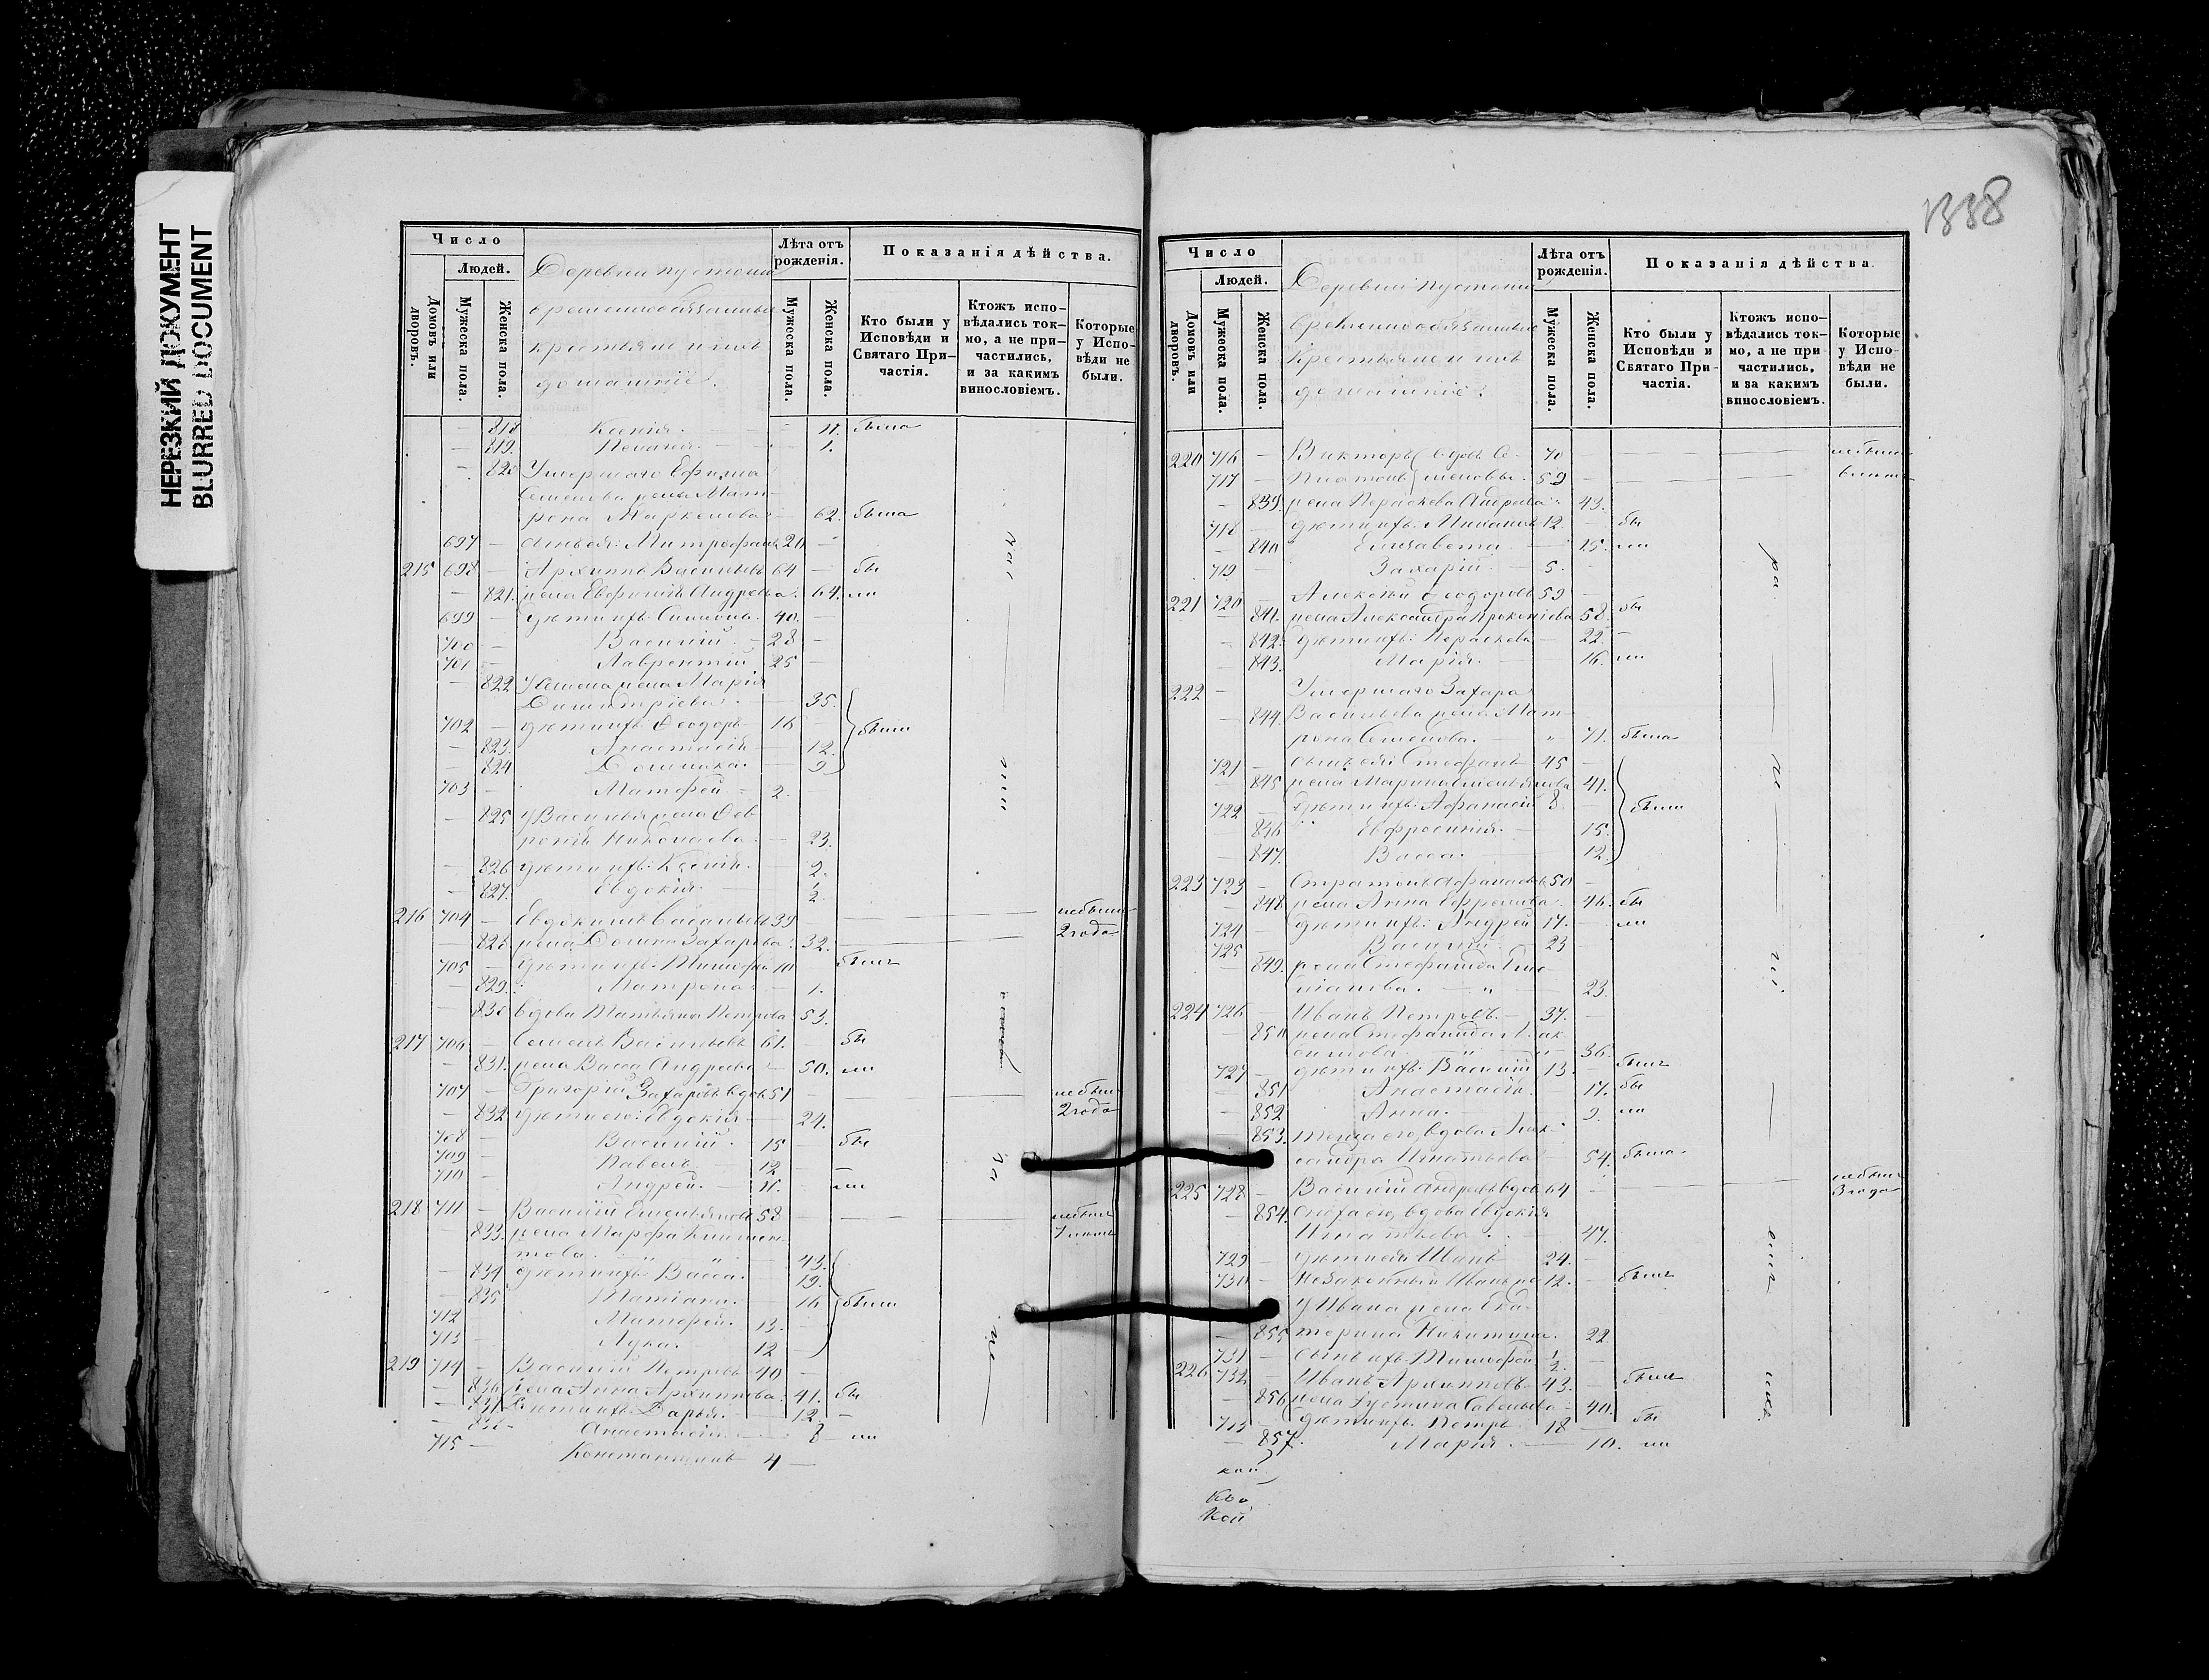 НЕРЕЗКИЙ ДОКУМЕНТ
BLURRED DOCUMENT
Число
Людей.
Домовъ или дворовъ.
Мужеска пола.
Женска пола.
Деревни
временнообязанные
крестьяне и ихъ
домашніе.
Лѣта отъ рожденія.
Мужеска пола.
Женска пола.
Показанія дѣйства.
Кто были у Исповѣди и Святаго При-частія.
Ктожъ испо-вѣдались ток-мо, а не при-частились, и за какимъ винословіемъ.
Которые у Испо-вѣди не были.
— 818 Ксенія. — 11. была
— 819. Пелагія. — 1.
— 820 Умершаго Ефима
Семенова жена Мат-
рона Маркелова — 62. была
697 — сынъ ея: Митрофанъ 20 —
215 698 — Архиппъ Васильевъ 64 — бы
— 821. жена Евфимія Андреева. 64. ли
699 — дѣти ихъ: Симеонъ. 40. —
700 — Василій. 28 —
701 — Лаврентій 25 —
— 822 У Симеона жена Марія
Димитріева. — 35.
702 — дѣти ихъ: Ѳеодоръ 16 — были
— 823. Анастасія — 12.
— 824 Домника. — 9
703 — Матфей — 2.
— 825 У Василья жена Фев-
ронія Николаева. — 23.
— 826 дѣти ихъ: Ксенія. — 2.
— 827. Евдокія — 1/2
216 704 — Евдокимъ Савельевъ 39 — небыли
— 828 жена Домна Захарова. 32. — 2 года
705 — дѣти ихъ: Тимофей 10 былъ
— 829. Матрона — 1.
— 830 вдова Татьяна Петрова 53.
217 706 — Семенъ Васильевъ 61. — бы
— 831. жена Васса Андреева — 50. ли
707 — Григорій Захаровъ вдовъ 51 — небылъ
— 832 дѣти его: Евдокія — 24. 2 года
708 — Василій. 15 — бы
709 — Павелъ. 12 —
710 — Андрей. — 11. — ли
218 711 — Василій Емельяновъ 58 — небылъ
— 833. жена Марфа Климен-
това. " " 43.
— 834 дѣти ихъ: Васса. — 19.
— 835 Татіана. — 16 были
712 — Матфей. 13.
713 — Лука. 12 —
219 714 — Василій Петровъ 40 —
— 836 жена Анна Архиппова. 41. бы
— 837 дѣти ихъ: Дарья. — 12 —
— 838 Анастасія. — 8 — ли
715 — Константинъ 4 —
1338
Число
Людей.
Домовъ или дворовъ.
Мужеска пола.
Женска пола.
Деревни
временнообязанные
Крестьяне и ихъ
домашніе.
Лѣта отъ рожденія.
Мужеска пола.
Женска пола.
Показанія дѣйства
Кто были у Исповѣди и Святаго При-частія.
Ктожъ испо-вѣдались ток-мо, а не при частились, и за какимъ винословіемъ.
Которые у Испо-вѣди не были.
220 716 — Викторъ вдовъ Се- 70 — небыли
717 — Платонъ меновы. 59 —
— 839. жена Параскева Андреева 43.
718 — дѣти ихъ: 12. — бы
— 840 Елизавета — 15. ли
719 — Захарій. — 5.
221 720 — Алексѣй Ѳеодоровъ 59 —
— 841. жена Александра Прокопіева 58. бы
— 842. дѣти ихъ: Параскева — 22 —
— 843. Марія. — 16. ли
222 — Умершаго Захара
— 844. Васильева жена Мат-
рона Семенова. — " 71. была
721 — сынъ ея: Стефанъ 45 —
— 845 жена Марина Емельянова 41.
722 — дѣти ихъ: Афанасій 8 — были
— 846 Евфросинія. — 15.
— 847. Васса. — 12.
223 723 — Стратонъ Афанасьевъ 50 —
— 848 жена Анна Ефремова. 46. бы
724 — дѣти ихъ: Андрей 17. — ли
725 — Василій. 23
— 849. жена Стефанида
— " — 23.
224 726 — Иванъ Петровъ. — 37. —
— 850 жена Стефанида Мак-
симова. — " — 36.
727 — дѣти ихъ: Василій 13. — былъ
— 851 Анастасія. 17. бы
— 852 Анна. — 9. ли
— 853. теща его, вдова Алек-
сандра Игнатьева — 54. была
225 728 — Василій Андреевъ вдовъ 64 — небылъ
3 года
— 854. сноха его, вдова Евдокія
Игнатьева. — 47.
729 — дѣти ея: Иванъ 24. —
730 — Незаконный Иванъ же 12. — былъ
У Ивана жена Ека-
— 855 терина Никитина. 22
731 — сынъ ихъ: Тимофей 1/2. —
226 732 — Иванъ Архипповъ 43. — былъ
— 856 жена Устина Савельева — 40.
733 — дѣти ихъ: Петръ 18 — бы
— 857. Марія. — 10. ли